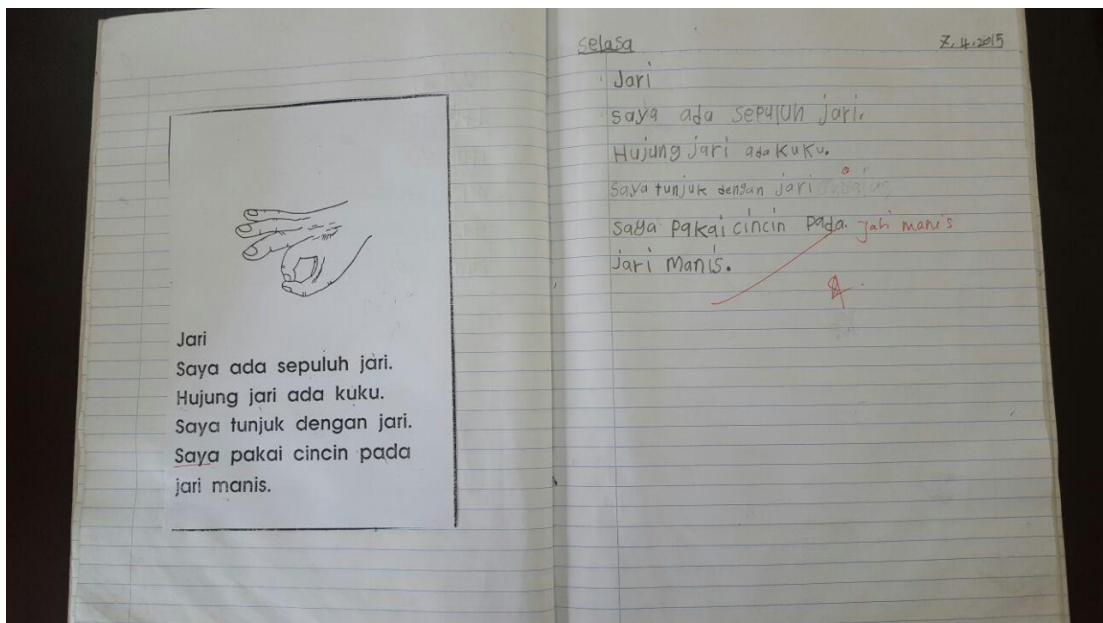 Jari
Saya ada sepuluh jari.
Hujung jari ada kuku.
Saya tunjuk dengan jari.
Saya pakai cincin pada
jari manis.
Selasa
7.4.2015
Jari
saya ada sepuluh jari.
Hujung jari ada kuku.
Saya tunjuk dengan jari
saya pakai cincin pada. jari manis
jari manis.